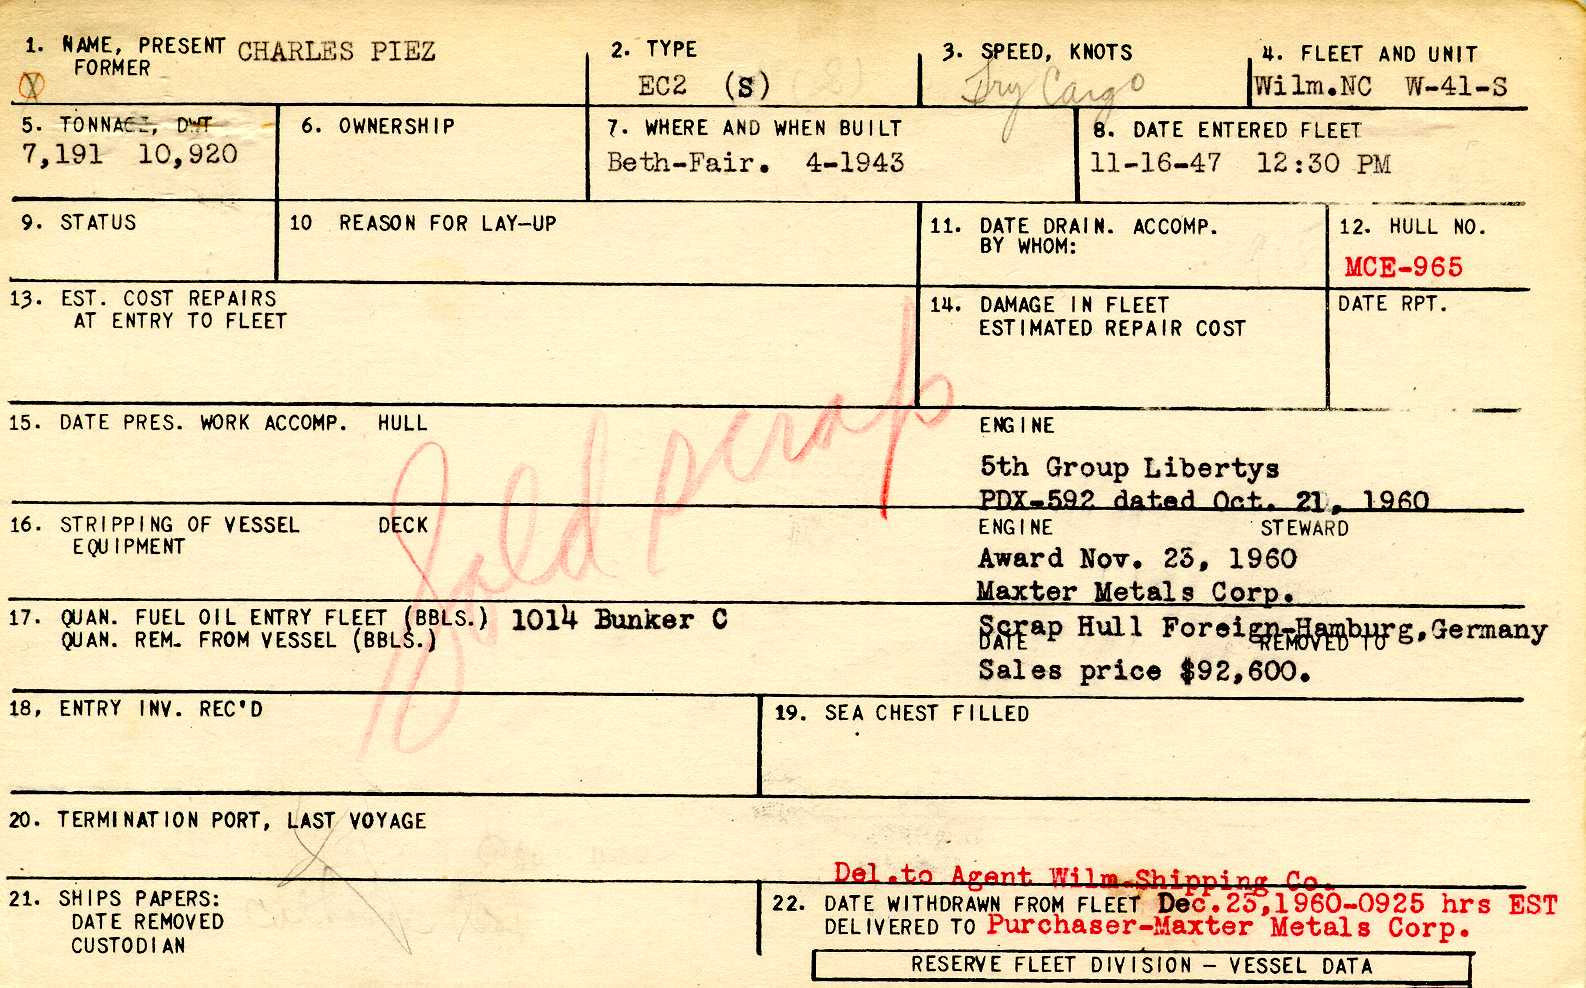 1. NAME, PRESENT CHARLES PIEZ
FORMER
X
2. TYPE
EC2 (S)
3. SPEED, KNOTS
Dry Cargo
4. FLEET AND UNIT
Wilm.NC W-41-S
5. TONNAGE, DWT
7,191 10,920
6. OWNERSHIP
7. WHERE AND WHEN BUILT
Beth-Fair. 4-1943
8. DATE ENTERED FLEET
11-16-47 12:30 PM
9. STATUS
10 REASON FOR LAY-UP
11. DATE DRAIN. ACCOMP.
BY WHOM:
12. HULL NO.
MCE-965
13. EST. COST REPAIRS
AT ENTRY TO FLEET
14. DAMAGE IN FLEET
ESTIMATED REPAIR COST
DATE RPT.
Sold scrap
15. DATE PRES. WORK ACCOMP. HULL
ENGINE
5th Group Libertys
PDX-592 dated Oct. 21, 1960
16. STRIPPING OF VESSEL DECK
EQUIPMENT
ENGINE STEWARD
Award Nov. 23, 1960
Maxter Metals Corp.
17. QUAN. FUEL OIL ENTRY FLEET (BBLS.) 1014 Bunker C
QUAN. REM. FROM VESSEL (BBLS.)
Scrap Hull Foreign-Hamburg, Germany
DATE REMOVED TO
Sales price $92,600.
18, ENTRY INV. REC'D
19. SEA CHEST FILLED
20. TERMINATION PORT, LAST VOYAGE
Del.to Agent Wilm.Shipping Co.
21. SHIPS PAPERS:
DATE REMOVED
CUSTODIAN
22. DATE WITHDRAWN FROM FLEET Dec.23,1960-0925 hrs EST
DELIVERED TO Purchaser-Maxter Metals Corp.
RESERVE FLEET DIVISION – VESSEL DATA